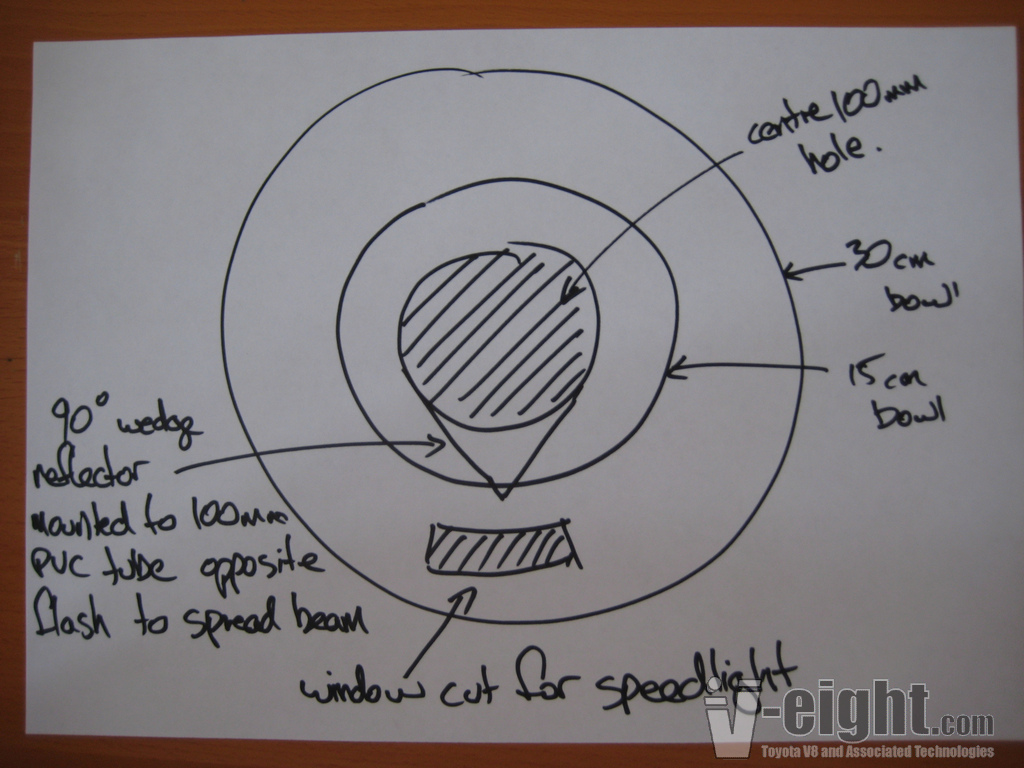 centre 100mm
hole.
30cm
bowl
15cm
bowl
90° wedge
reflector
mounted to 100mm
PVC tube opposite
flash to spread beam
window cut for speedlight
V-eight.com
Toyota V8 and Associated Technologies